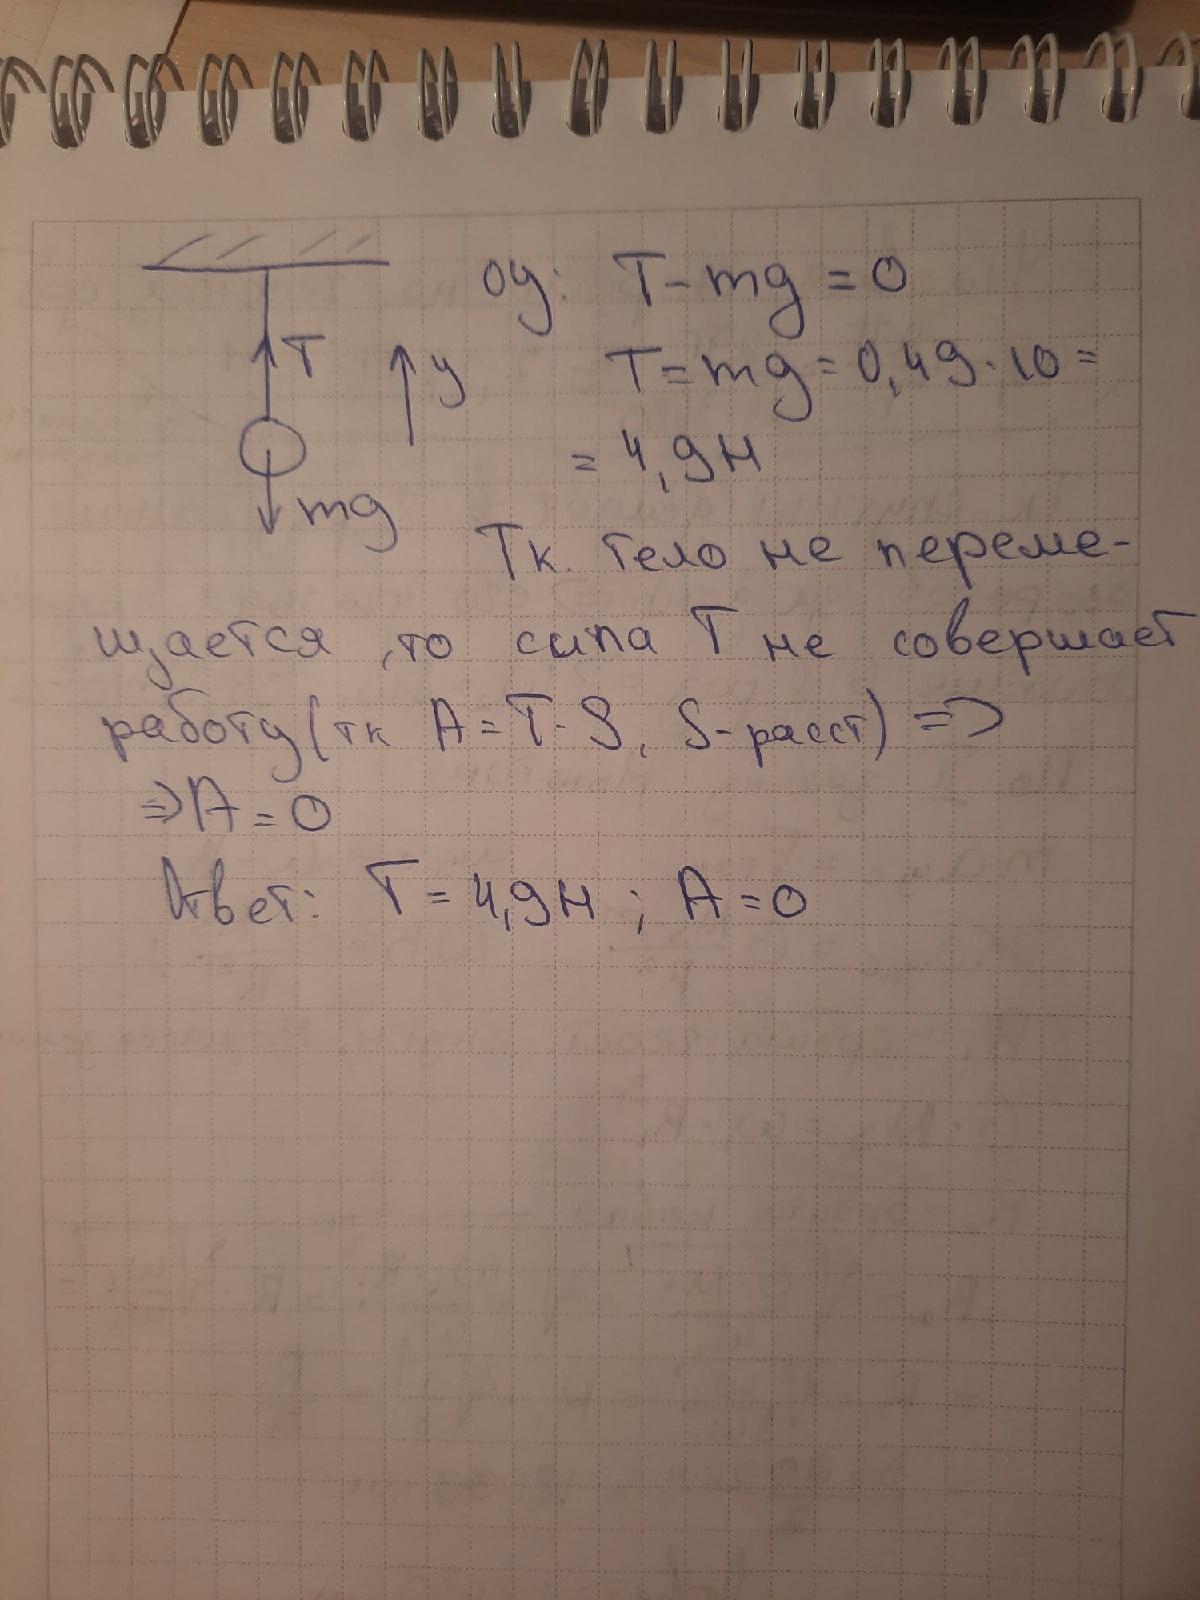 Oy: T - mg = 0
T
y
T = mg = 0,49 · 10 =
= 4,9 Н
mg
Тк. тело не переме-
щается, то сила T не совершает
работу (тк A = T · S, S - расст) =>
=> A = 0
Ответ: T = 4,9 Н ; A = 0